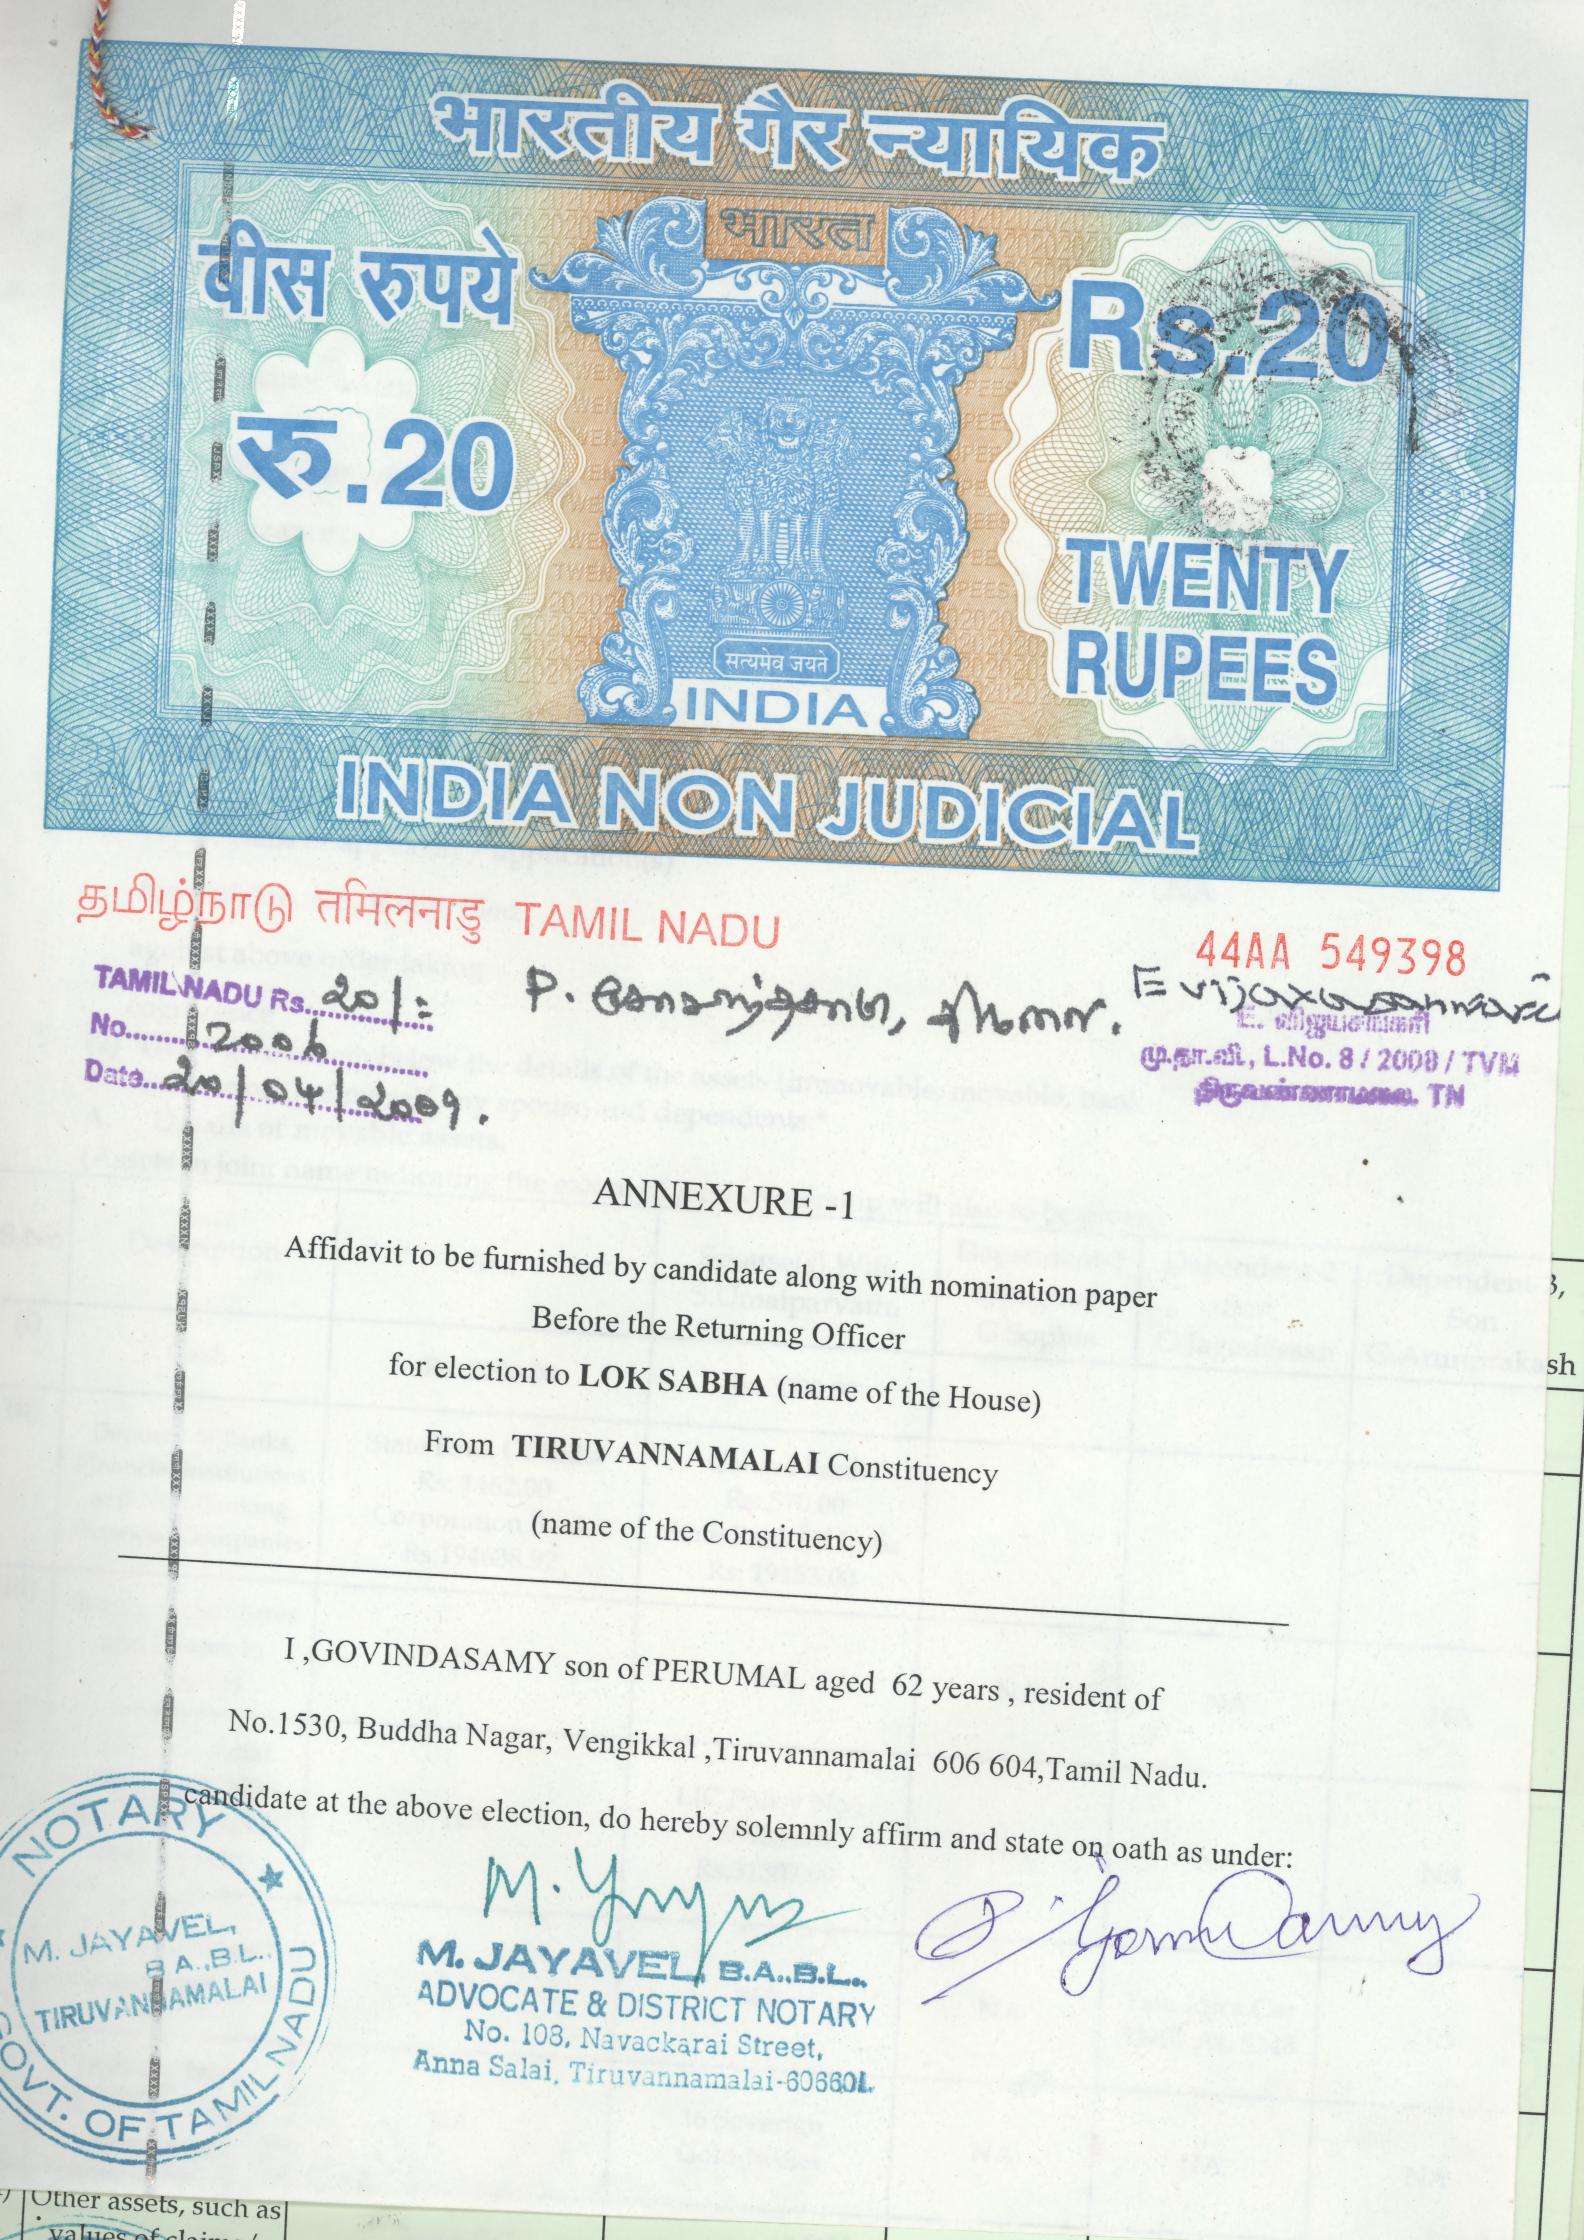 भारतीय गैर न्यायिक
भारत
बीस रुपये
Rs.20
रु.20
TWENTY
RUPEES
सत्यमेव जयते
INDIA
INDIA NON JUDICIAL
தமிழ்நாடு तमिलनाडु TAMIL NADU
44AA 549398
TAMIL NADU Rs. 20/-
P. கோவிந்தசாமி,
No. 2006
Date 20/04/2009.
E. விஜயசங்கரி
மு.தா.வி, L.No. 8 / 2008 / TVM
திருவண்ணாமலை. TN
ANNEXURE -1
Affidavit to be furnished by candidate along with nomination paper
Before the Returning Officer
for election to LOK SABHA (name of the House)
From TIRUVANNAMALAI Constituency
(name of the Constituency)
I ,GOVINDASAMY son of PERUMAL aged 62 years , resident of
No.1530, Buddha Nagar, Vengikkal ,Tiruvannamalai 606 604,Tamil Nadu.
candidate at the above election, do hereby solemnly affirm and state on oath as under:
NOTARY
M. JAYAVEL,
B A.,B.L..
TIRUVANNAMALAI
GOVT. OF TAMIL NADU
M. JAYAVEL, B.A.,B.L..
ADVOCATE & DISTRICT NOTARY
No. 108, Navackarai Street,
Anna Salai, Tiruvannamalai-606601.
sh
Other assets, such as
values of claims/